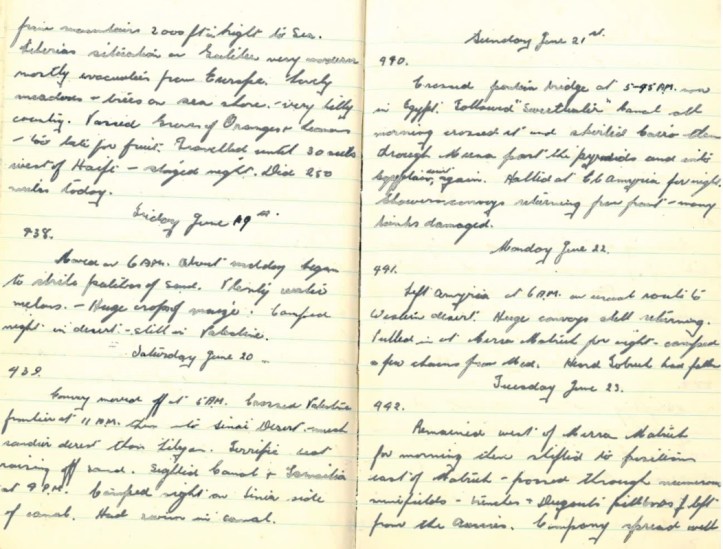 from mountains 2000 ft in height to Sea.
Tiberias situation on Galilee very modern
mostly evacuées from Europe. Lovely
meadows - trees on sea shore. - very hilly
country. Passed Groves of Oranges + lemons
- too late for fruit. Travelled until 30 mls
west of Haifa - stayed night. Did 250
miles today.
Friday June 19th.
938.
Moved on 6 A.M. About midday began
to strike patches of sand. Plenty water
melons. - Huge crops of maize. Camped
night in desert - still in Palestine.
Saturday June 20
939.
Convoy moved off at 5 AM. Crossed Palestine
frontier at 11 A.M. to Sinai Desert - much
sandier desert than Libyan. Terrific heat
raising off sand. Sighted Canal + Ismailia
at 9 P.M. Camped night on Sinai side
of canal. Had swim in canal.
Sunday June 21st.
990.
Crossed pontoon bridge at 5-45 A.M. now
in Egypt. Followed "Sweetwater" Canal all
morning crossed it and skirted Cairo - then
through Mena past the pyramids and into
Egyptian again. Halted at Amyria for night.
convoys returning from front - many
tanks damaged.
Monday June 22.
991.
Left Amyria at 6 A.M. on usual route to
Western desert. Huge convoys still returning.
Pulled in at Mersa Matruh for night - camped
a few chains from Med. Heard Tobruk had fallen
Tuesday June 23.
992.
Remained west of Mersa Matruh
for morning then shifted to position
east of Matruh - passed through numerous
minefields - trenches + Dugouts pillboxes left
from the Company spread well